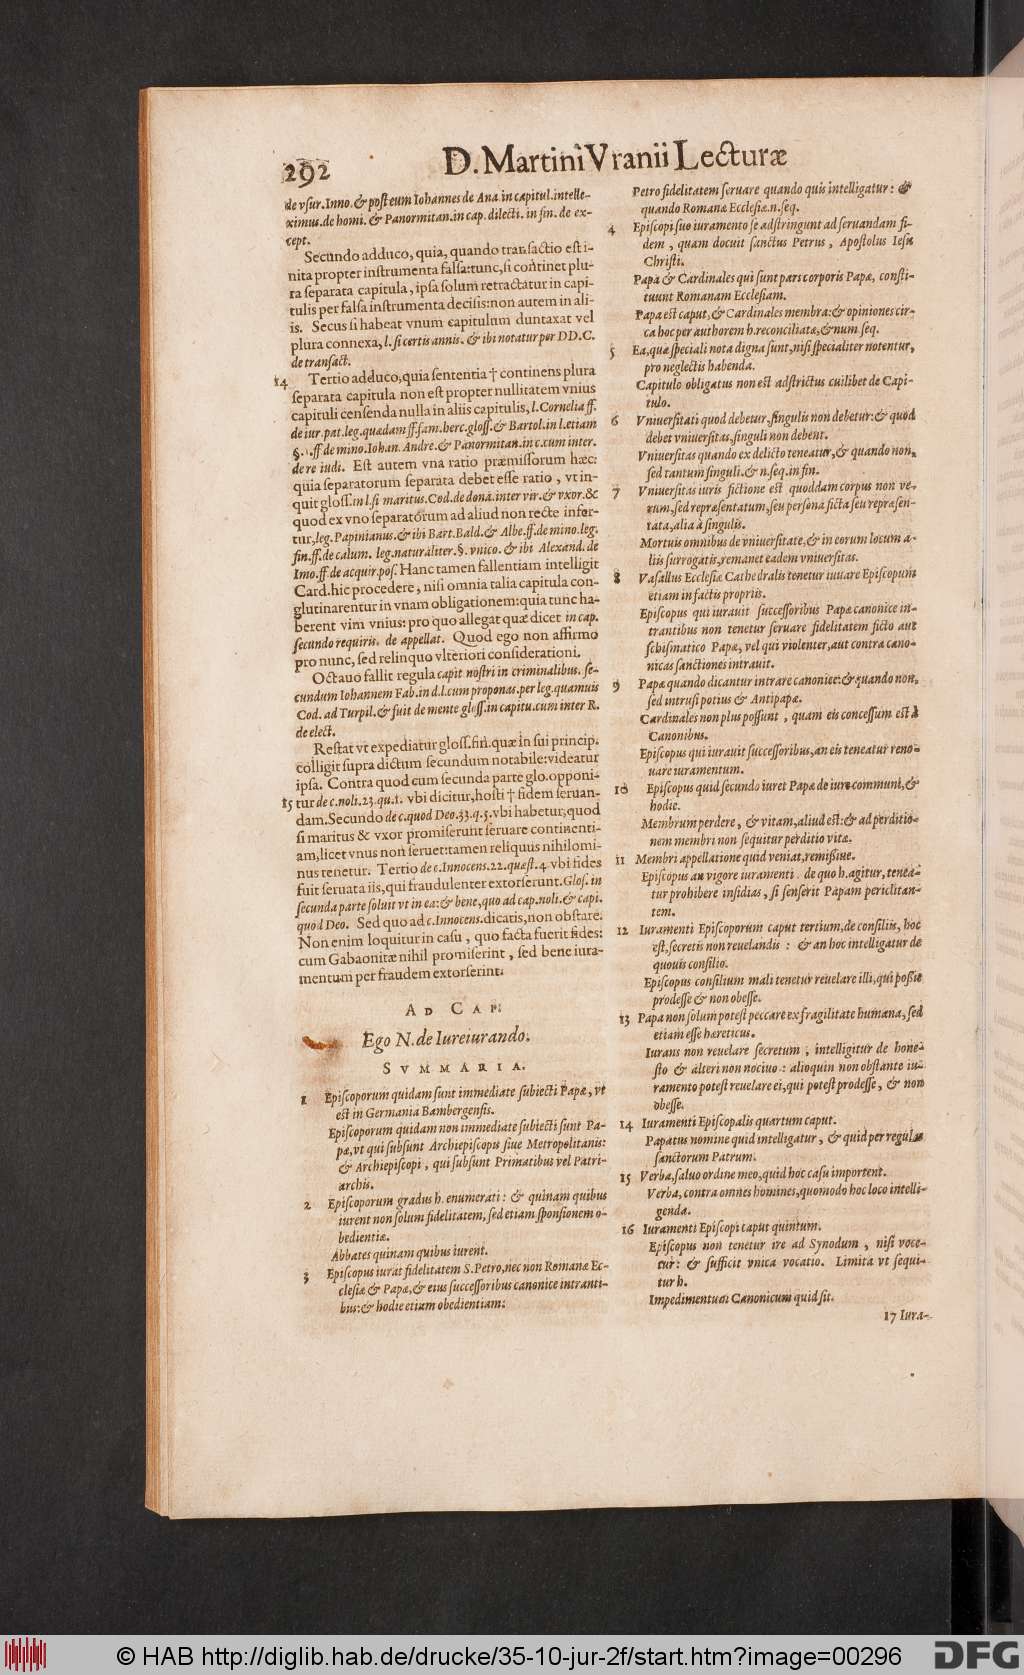 292
D. Martini Vranii Lecturæ
de vsur. Inno. & post eum Iohannes de Ana. in capitul. intelle-
ximus. de homi. & Panormitan. in cap. dilecti. in fin. de ex-
cept.
Secundo adduco, quia, quando transactio est i-
nita propter instrumenta falsa: tunc, si continet plu-
ra separata capitula, ipsa solum retractatur in capi-
tulis per falsa instrumenta decisis: non autem in ali-
is. Secus si habeat vnum capitulum duntaxat vel
plura connexa, l. si certis annis. & ibi notatur per DD. C.
de transact.
14 Tertio adduco, quia sententia † continens plura
separata capitula non est propter nullitatem vnius
capituli censenda nulla in aliis capitulis, l. Cornelia ff.
de iur. pat. leg. quædam ff. fam. herc. gloss. & Bartol. in l. etiam
§. ff. de mino. Iohan. Andre. & Panormitan. in c. cum inter.
de re iudi. Est autem vna ratio præmissorum hæc:
quia separatorum separata debet esse ratio, vt in-
quit gloss. in l. si maritus. Cod. de dona. inter vir. & vxor. &
quod ex vno separatorum ad aliud non recte infer-
tur, leg. Papinianus. & ibi Bart. Bald. & Albe. ff. de mino. leg.
fin. ff. de calum. leg. naturaliter. §. vnico. & ibi Alexand. de
Imo. ff. de acquir. pos. Hanc tamen fallentiam intelligit
Card. hic procedere, nisi omnia talia capitula con-
glutinarentur in vnam obligationem: quia tunc ha-
berent vim vnius: pro quo allegat quæ dicet in cap.
secundo requiris. de appellat. Quod ego non affirmo
pro nunc, sed relinquo vlteriori considerationi.
Octauo fallit regula capit nostri in criminalibus. se-
cundum Iohannem Fab. in d. l. cum proponas. per leg. quamuis
Cod. ad Turpil. & fuit de mente gloss. in capitu. cum inter R.
de elect.
Restat vt expediatur gloss. fin. quæ in sui princip.
colligit supra dictum secundum notabile: videatur
ipsa. Contra quod cum secunda parte glo. opponi-
15 tur de c. noli. 23. qu. 1. vbi dicitur, hosti † fidem seruan-
dam. Secundo de c. quod Deo. 33. q. 5. vbi habetur, quod
si maritus & vxor promiserunt seruare continenti-
am, licet vnus non seruet: tamen reliquus nihilomi-
nus tenetur. Tertio de c. Innocens. 22. quæst. 4. vbi fides
fuit seruata iis, qui fraudulenter extorserunt. Glos. in
secunda parte soluit vt in ea: & bene, quo ad cap. noli. & capi.
quod Deo. Sed quo ad c. Innocens. dicatis, non obstare.
Non enim loquitur in casu, quo facta fuerit fides:
cum Gabaonitæ nihil promiserint, sed bene iura-
mentum per fraudem extorserint.
AD CAP.
Ego N. de Iureiurando.
SVMMARIA.
1 Episcoporum quidam sunt immediate subiecti Papæ, vt
est in Germania Bambergensis.
Episcoporum quidam non immediate subiecti sunt Pa-
pæ, vt qui subsunt Archiepiscopis siue Metropolitanis:
& Archiepiscopi, qui subsunt Primatibus vel Patri-
archis.
2 Episcoporum gradus h. enumerati: & quinam quibus
iurent non solum fidelitatem, sed etiam sponsionem o-
bedientiæ.
Abbates quinam quibus iurent.
3 Episcopus iurat fidelitatem S. Petro, nec non Romanæ Ec-
clesiæ & Papæ, & eius successoribus canonice intranti-
bus: & hodie etiam obedientiam:
Petro fidelitatem seruare quando quis intelligatur: &
quando Romanæ Ecclesiæ. n. seq.
4 Episcopi suo iuramento se adstringunt ad seruandam fi-
dem, quam docuit sanctus Petrus, Apostolus Iesu
Christi.
Papa & Cardinales qui sunt pars corporis Papæ, consti-
tuunt Romanam Ecclesiam.
Papa est caput, & Cardinales membra: & opiniones cir-
ca hoc per authorem h. reconciliatæ, & num seq.
5 Ea, quæ speciali nota digna sunt, nisi specialiter notentur,
pro neglectis habenda.
Capitulo obligatus non est adstrictus cuilibet de Capi-
tulo.
6 Vniuersitati quod debetur, singulis non debetur: & quod
debet vniuersitas, singuli non debent.
Vniuersitas quando ex delicto teneatur, & quando non,
sed tantum singuli. & n. seq. in fin.
7 Vniuersitas iuris fictione est quoddam corpus non ve-
rum, sed repræsentatum, seu persona ficta seu repræsen-
tata, alia à singulis.
Mortuis omnibus de vniuersitate, & in eorum locum a-
liis surrogatis, remanet eadem vniuersitas.
8 Vasallus Ecclesiæ Cathedralis tenetur iuuare Episcopum
etiam in factis propriis.
Episcopus qui iurauit successoribus Papæ canonice in-
trantibus non tenetur seruare fidelitatem ficto aut
schismatico Papæ, vel qui violenter, aut contra cano-
nicas sanctiones intrauit.
9 Papæ quando dicantur intrare canonice: & quando non,
sed intrusi potius & Antipapæ.
Cardinales non plus possunt, quam eis concessum est à
Canonibus.
Episcopus qui iurauit successoribus, an eis teneatur reno-
uare iuramentum.
10 Episcopus quid secundo iuret Papæ de iure communi, &
hodie.
Membrum perdere, & vitam, aliud est: & ad perditio-
nem membri non sequitur perditio vitæ.
11 Membri appellatione quid veniat, remissiue.
Episcopus an vigore iuramenti de quo h. agitur, tenea-
tur prohibere insidias, si senserit Papam periclitan-
tem.
12 Iuramenti Episcoporum caput tertium, de consiliis, hoc
est, secretis non reuelandis: & an hoc intelligatur de
quouis consilio.
Episcopus consilium mali tenetur reuelare illi, qui possit
prodesse & non obesse.
13 Papa non solum potest peccare ex fragilitate humana, sed
etiam esse hæreticus.
Iurans non reuelare secretum, intelligitur de hone-
sto & alteri non nociuo: alioquin non obstante iu-
ramento potest reuelare ei, qui potest prodesse, & non
obesse.
14 Iuramenti Episcopalis quartum caput.
Papatus nomine quid intelligatur, & quid per regulas
sanctorum Patrum.
15 Verba, saluo ordine meo, quid hoc casu importent.
Verba, contra omnes homines, quomodo hoc loco intelli-
genda.
16 Iuramenti Episcopi caput quintum.
Episcopus non tenetur ire ad Synodum, nisi voce-
tur: & sufficit vnica vocatio. Limita vt sequi-
tur h.
Impedimentum Canonicum quid sit.
17 Iura-
© HAB http://diglib.hab.de/drucke/35-10-jur-2f/start.htm?image=00296
DFG